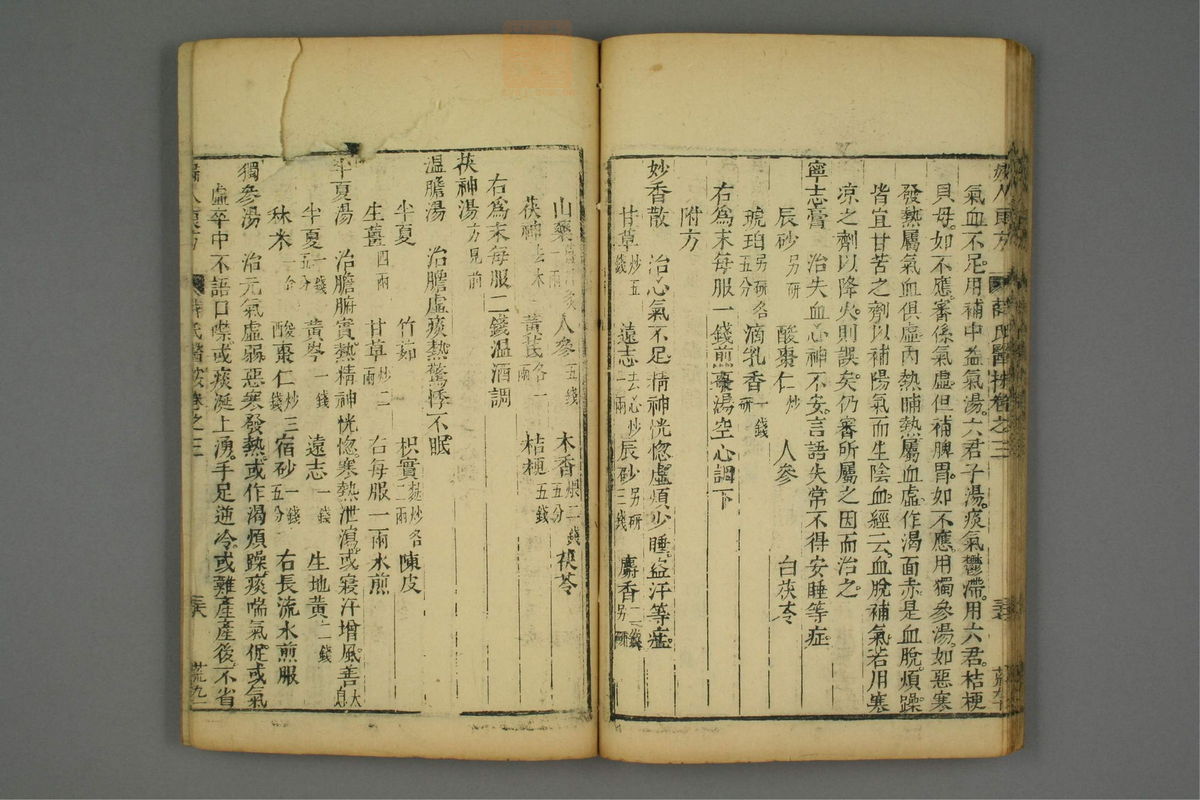 氣血不足用補中益氣湯六君子湯痰氣鬱滯用六君桔梗
貝母如不應審係氣虛但補脾胃如不應用獨參湯如惡寒
發熱屬氣血俱虛內熱晡熱屬血虛作渴面赤是血脫煩躁
皆宜甘苦之劑以補陽氣而生陰血經云血脫補氣若用寒
凉之劑以降火則誤矣仍審所屬之因而治之
寧志膏 治失血心神不安言語失常不得安睡等症
辰砂另研 酸棗仁炒 人參 白茯苓
琥珀另研各五分 滴乳香一錢研
右爲末每服一錢煎棗湯空心調下
附方
妙香散 治心氣不足精神恍惚虛煩少睡盜汗等症
甘草炒五錢 遠志去心炒一兩 辰砂另研三錢 麝香二錢另研
山藥一兩 人參五錢 木香煨二錢五分 茯苓
茯神去木 黃芪各一兩 桔梗五錢
右爲末每服二錢温酒調
茯神湯方見前
温膽湯 治膽虛痰熱驚悸不眠
半夏 竹茹 枳實麩炒各二兩 陳皮
生薑四兩 甘草炒二兩 右每服一兩水煎
半夏湯 治膽腑實熱精神恍惚寒熱泄瀉或寢汗增風善太息
半夏一錢五分 黃芩一錢 遠志一錢 生地黃二錢
秫米一合 酸棗仁炒三錢 宿砂一錢五分 右長流水煎服
獨參湯 治元氣虛弱惡寒發熱或作渴煩躁痰喘氣促或氣
虛卒中不語口噤或痰涎上湧手足逆冷或難產產後不省
婦人良方 薛氏醫按卷之三 三六 荒九一